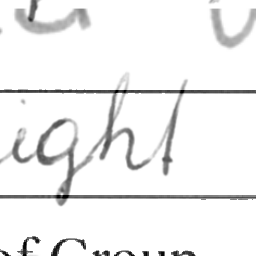 ight
of Group